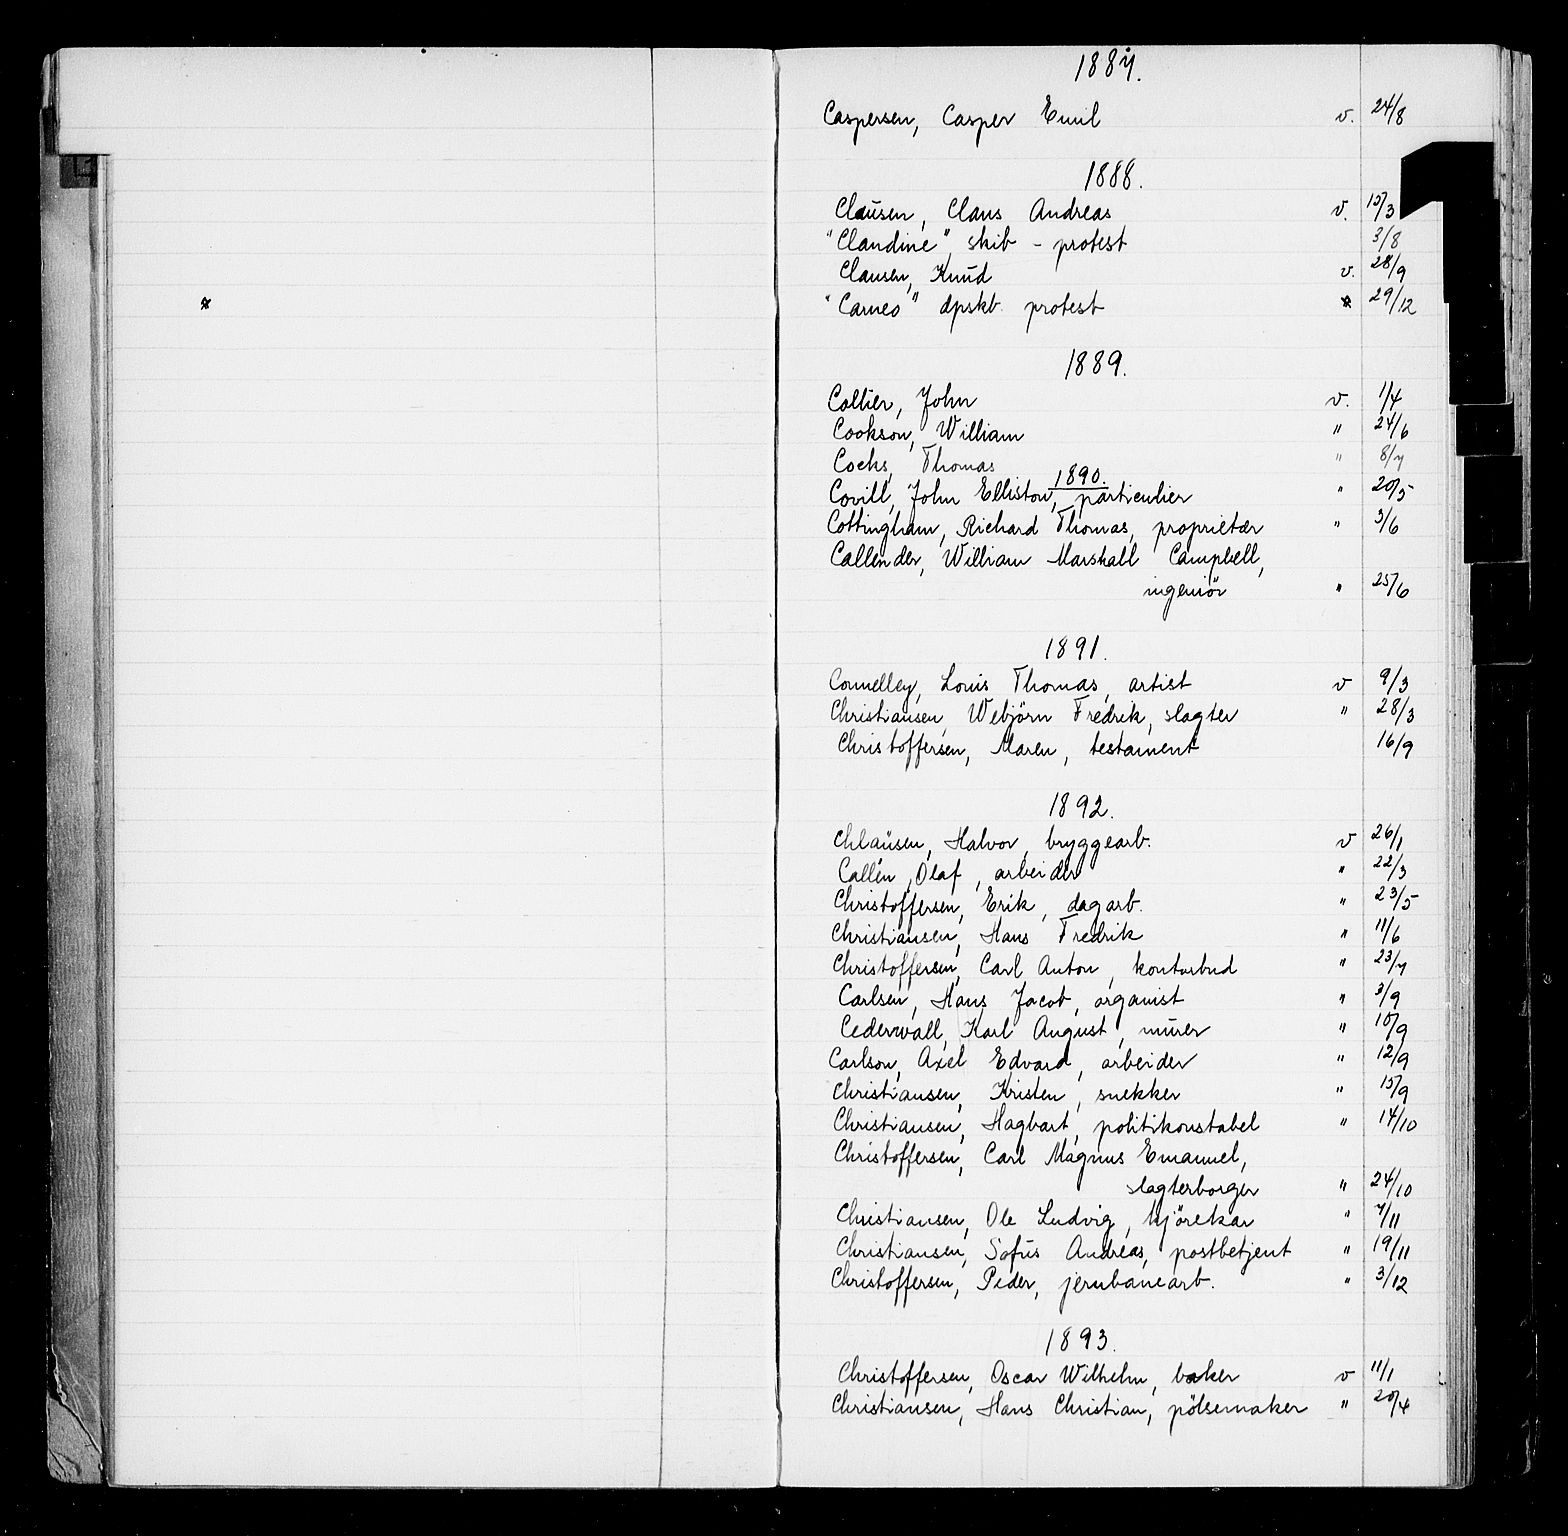 1887.
Caspersen, Casper Emil v. 24/8
1888.
Clausen, Claus Andreas v. 15/3
"Claudine" skib - protest 3/8
Clausen, Knud v. 28/9
"Cameo" dpskb. protest 29/12
1889.
Collier, John v. 1/4
Cookson, William " 24/6
Cocks, Thomas " 8/7
1890.
Covill, John Elliston, particulier " 20/5
Cottingham, Richard Thomas, proprietær " 3/6
Callender, William Marshall Campbell,
ingeniör " 25/6
1891.
Connelley, Louis Thomas, artist v 9/3
Christiansen, Webjörn Fredrik, slagter " 28/3
Christoffersen, Maren, testament 16/9
1892.
Chlausen, Halvor, bryggearb. v 26/1
Callén, Olaf, arbeider " 22/3
Christoffersen, Erik, dagarb. " 23/5
Christiansen, Hans Fredrik " 11/6
Christoffersen, Carl Anton, kontorbud " 23/7
Carlsen, Hans Jacob, organist " 3/9
Cederwall, Karl August, murer " 10/9
Carlson, Axel Edvard, arbeider " 12/9
Christiansen, Kristen, snekker " 15/9
Christiansen, Hagbart, politikonstabel " 14/10
Christoffersen, Carl Magnus Emanuel,
slagterborger " 24/10
Christiansen, Ole Ludvig, kjörekar " 7/11
Christiansen, Sofus Andreas, postbetjent " 19/11
Christoffersen, Peder, jernbanearb. " 3/12
1893.
Christoffersen, Oscar Wilhelm, baker v 11/1
Christiansen, Hans Christian, pölsemaker " 20/4